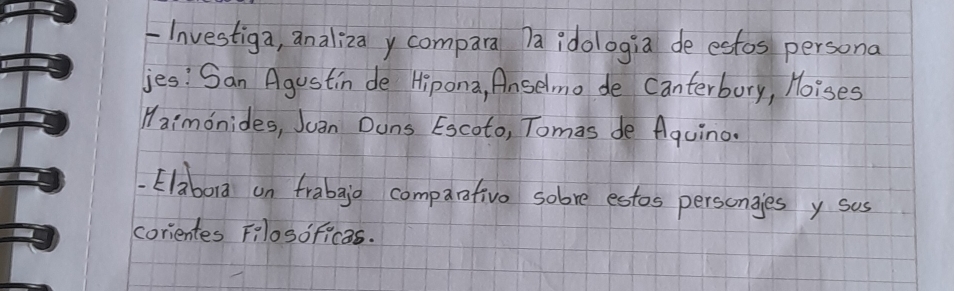 - Investiga, analiza y compara la idologia de estos persona
jes: San Agustín de Hipona, Anselmo de Canterbury, Moises
Maimónides, Juan Duns Escoto, Tomas de Aquino.
- Elabora un trabajo comparativo sobre estos personajes y sus
corientes Filosóficas.